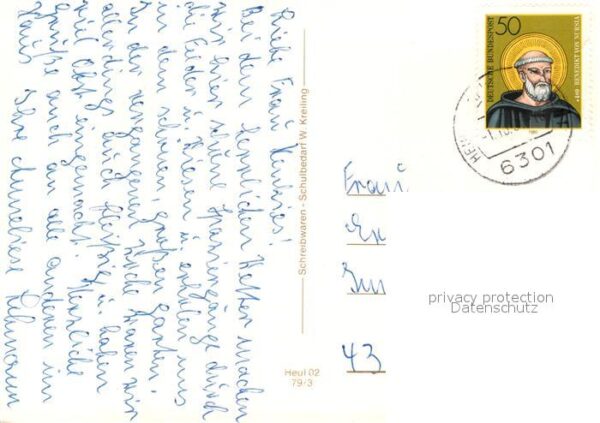 Liebe Frau
Bei dem herrlichen Wetter machen
wir hier schöne Spaziergänge durch
die Felder u. Wiesen u. erholen uns
in dem schönen, großen Garten.
In der vergangenen Woche waren wir
allerdings auch fleißig u. haben
viel Obst eingemacht. Herzliche
Grüße auch an alle anderen im
Haus Ihre Anneliese Lehmann
Schreibwaren - Schulbedarf W. Kreiling
Heul 02
79/3
50
DEUTSCHE BUNDESPOST
BENEDIKT VON NURSIA
6301
Frau
43
privacy protection
Datenschutz